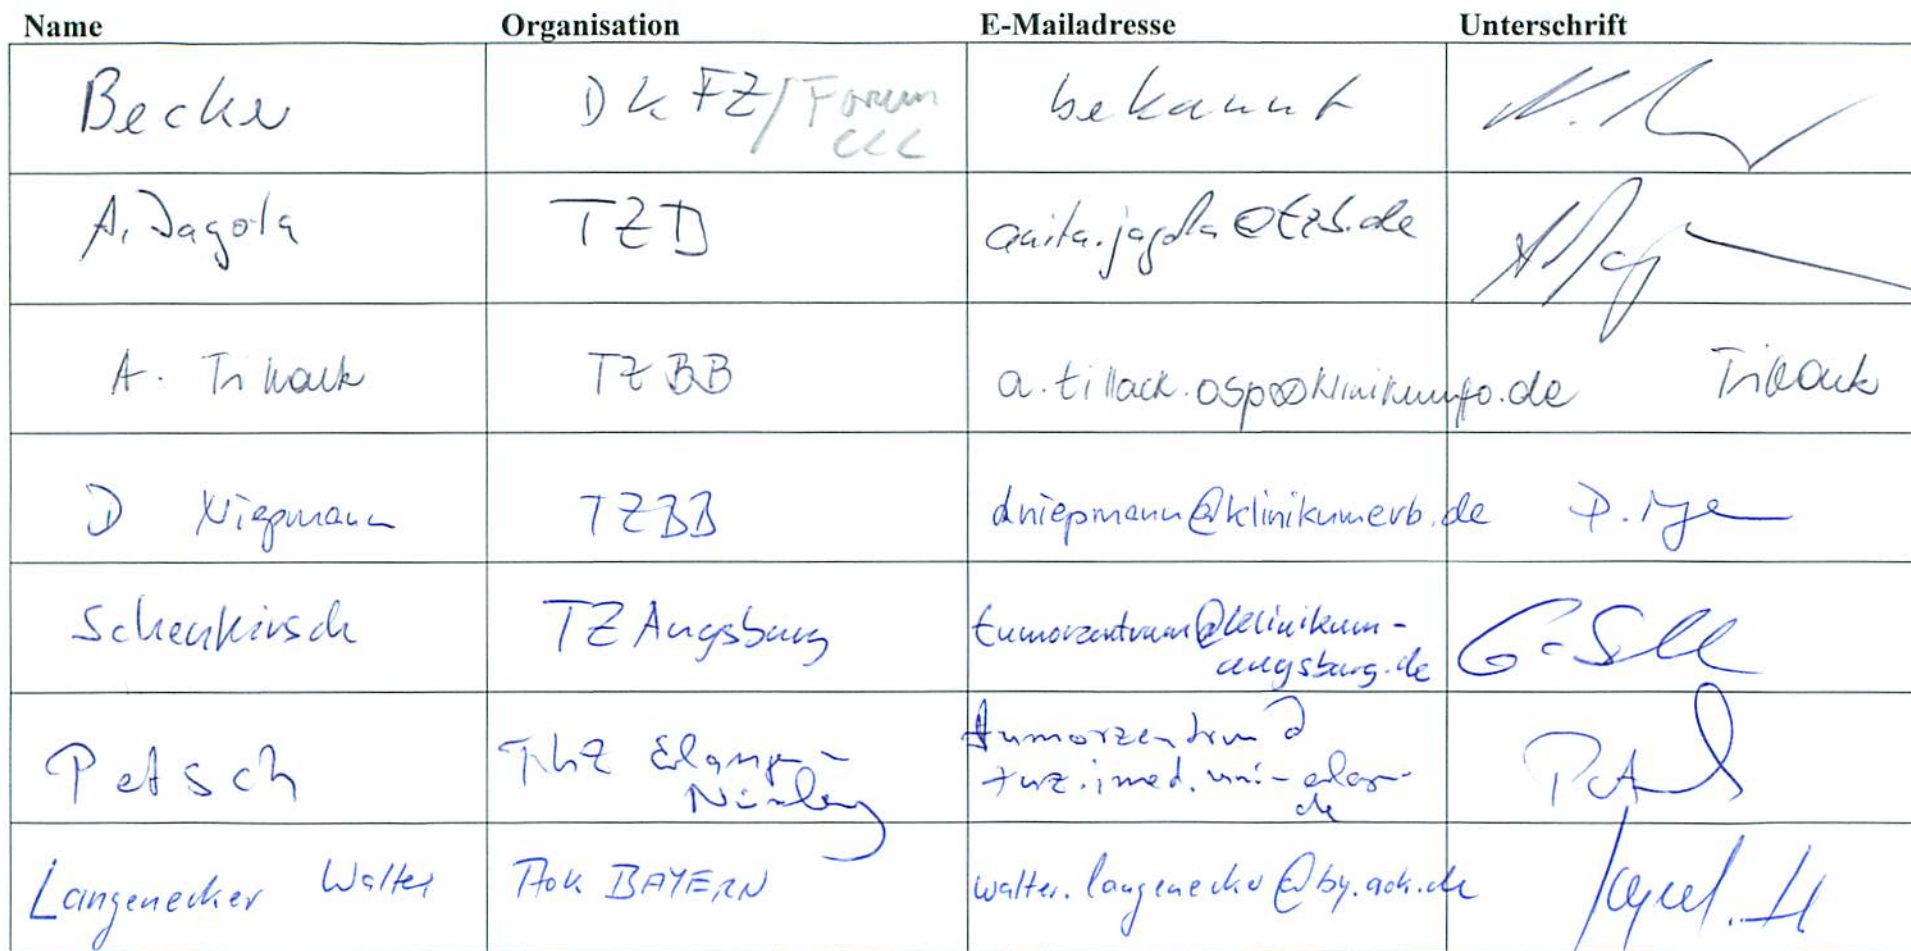 Name Organisation E-Mailadresse Unterschrift
Becker DKFZ/Forum bekannt
CCC
A. Jagota TZB anita.jagota@tzb.de
A. Tillack TZBB a.tillack.osp@klinikumffo.de Tillack
D Niepmann TZBB dniepmann@klinikumevb.de
Schenkirsch TZ Augsburg tumorzentrum@klinikum-
augsburg.de
Petsch Erlangen- Tumorzentrum @
Nürnberg
Langenecker Walter AOK BAYERN walter.langenecker@by.aok.de